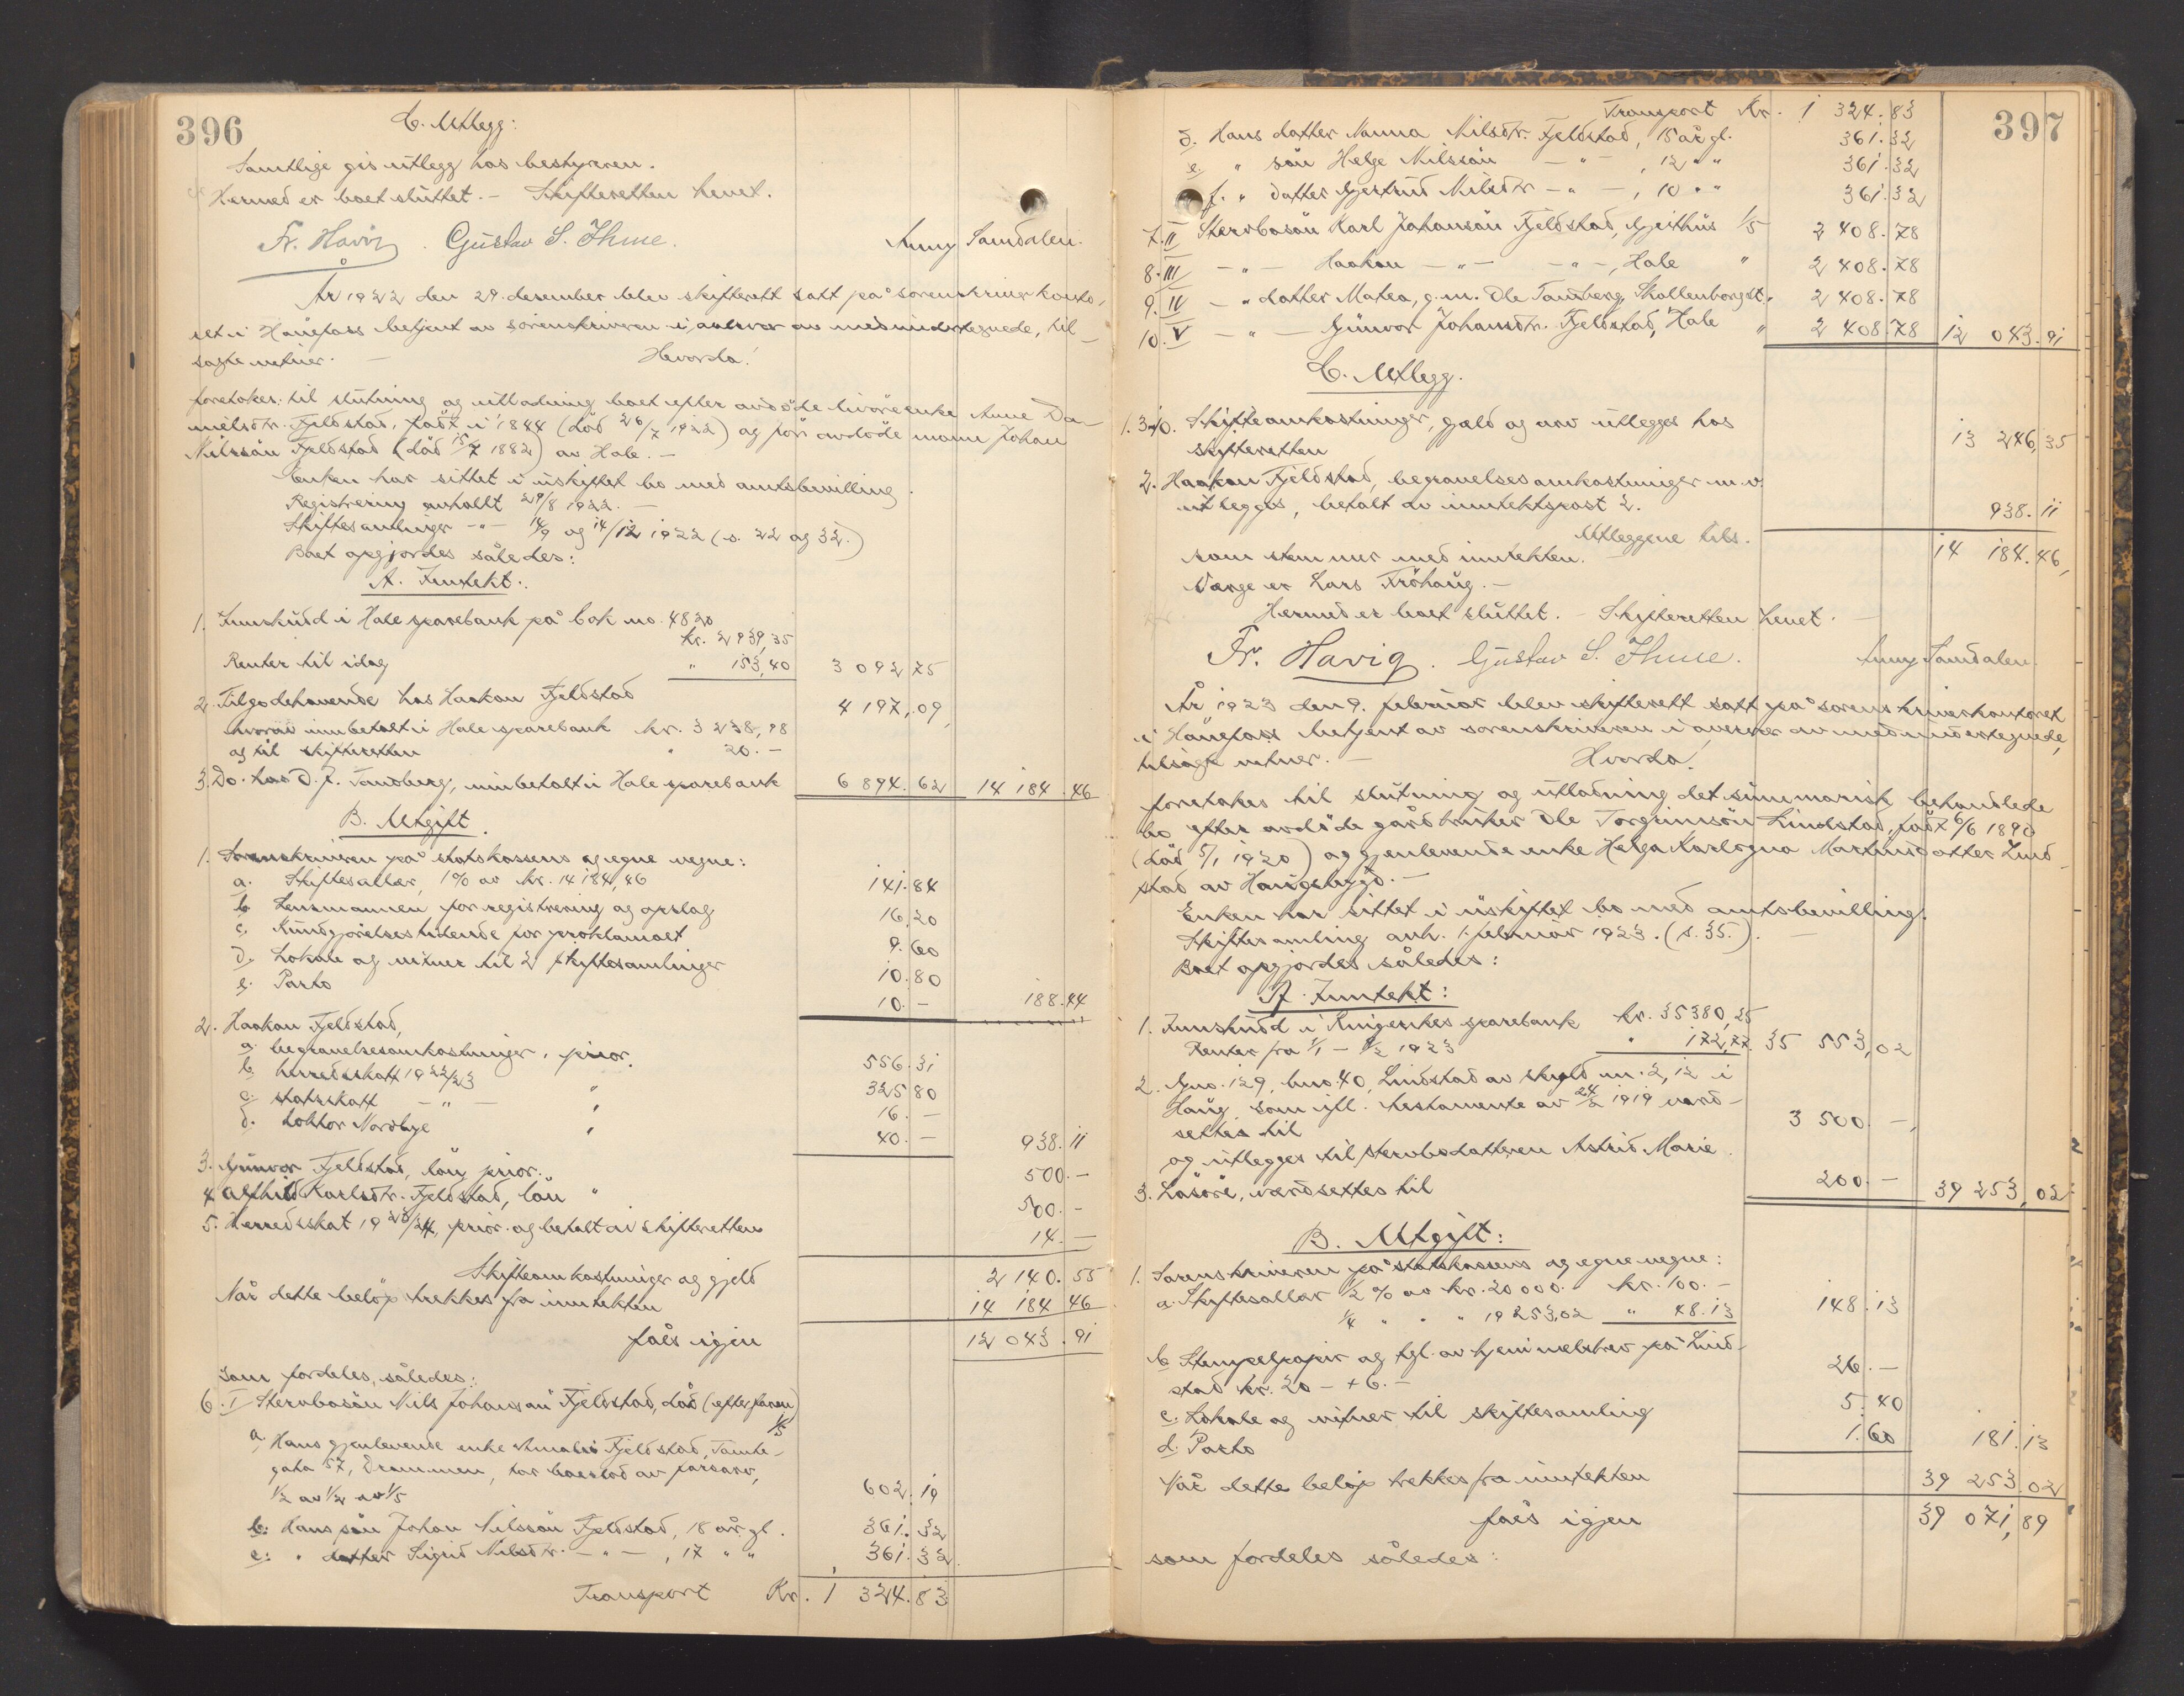 396
C. Utlegg:
Samtlige gis utlegg hos bestyreren.
Hermed er boet sluttet. - Skifteretten hevet.
Fr. Havig. Gustav S. Thue. Anny Samdalen.
År 1922 den 29. desember blev skifterett satt på sorenskriverkonto-
ret i Hønefoss betjent av sorenskriveren i overvær av medundertegnede, til-
sagte vitner. - Hvorda!
foretokes til slutning og utlodning boet efter avdøde livøreenke Anne Da-
nielsdtr. Fjeldstad, født i 1844 (død 26/7 1922) og før avdøde mann Johan
Nilssøn Fjeldstad (død 15/7 1882) av Hole. -
Enken har sittet i uskiftet bo med amtsbevilling.
Registrering avholdt 29/8 1922. -
Skiftesamlinger -"- 14/9 og 14/12 1922 (s. 22 og 32.)
Boet opgjordes således:
A. Inntekt.
1. Innskudd i Hole sparebank på bok no. 4820
kr. 2939,35
Renter til idag " 153,40 3 092 75
2. Tilgodehavende hos Haakon Fjeldstad 4 197,09
hvorav innbetalt i Hole sparebank kr. 3 238,98
og til skifteretten " 20.-
3. Do. hos O. J. Tandberg, innbetalt i Hole sparebank 6 894.62 14 184.46
B. Utgift
1. Sorenskriveren på statskassens og egne vegne:
a. Skiftesallær, 1% av kr. 14 184,46 141.84
b. Lensmannen for registrering og opslag 16,20
c. Kundgjørelsestidende for proklamaet 9.60
d. Lokale og vitner til 2 skiftesamlinger 10.80
e. Porto 10.- 188.44
2. Haakon Fjeldstad,
a. begravelsesomkostninger, prior. 556.31
b. herredsskatt 1922/23 " 325 80
c. statsskatt -"- " 16.-
d. doktor Nordbye " 40.- 938.11
3. Gunvor Fjeldstad, løn, prior. 500.-
4. Alfhild Karlsdtr. Fjeldstad, løn " 500.-
5. Herredsskat 1923/24, prior. og betalt av skifteretten 14.-
Skifteomkostninger og gjeld 2 140.55
Når dette beløp trekkes fra inntekten 14 184 46
fåes igjen 12 043.91
som fordeles, således:
6. I Stervbosøn Nils Johanssøn Fjeldstad, død (efter faren) 1/5
a. Hans gjenlevende enke Amalie Fjeldstad, Tomte-
gata 57, Drammen, tar boeslod av farsarv,
1/2 av 1/2 av 1/5 602.19
b. Hans søn Johan Nilssøn Fjeldstad, 18 år gl. 361.32
c. " datter Sigrid Nilsdtr. -"-, 17 " " 361.32
Transport Kr. 1 324.83
397
Transport Kr. 1 324.83
d. Hans datter Nanna Nilsdtr. Fjeldstad, 15 år gl. 361.32
e. " søn Helge Nilssøn -"-, 12 " " 361.32
f. " datter Gjertrud Nilsdtr -"-, 10 " " 361.32
7. II Stervbosøn Karl Johanssøn Fjeldstad, Gjeithus 1/5 2 408.78
8. III -"- Haakon -"- -"-, Hole " 2 408.78
9. IV -" datter Matea, g.m. Ole Tandberg, Skollenborg st. " 2 408.78
10. V -"- Gunvor Johansdtr. Fjeldstad, Hole " 2 408.78 12 043.91
C. Utlegg.
1. 3-10. Skifteomkostninger, gæld og arv utlegges hos
skifteretten 13 246,35
2. Haakon Fjeldstad, begravelsesomkostninger m.v.
utlegges, betalt av inntektspost 2. 938.11
Utleggene tils. 14 184.46
som stemmer med inntekten.
Værge er Lars Frøhaug. -
Hermed er boet sluttet. - Skifteretten hevet. -
Fr. Havig. Gustav S. Thue. Anny Samdalen.
År 1923 den 9. februar blev skifterett satt på sorenskriverkontoret
i Hønefoss betjent av sorenskriveren i overvær av medundertegnede,
tilsagte vitner. - Hvorda!
foretokes til slutning og utlodning det summarisk behandlede
bo efter avdøde gårdbruker Ole Torgrimsøn Lindstad, født 6/6 1890
(død 5/1 1920) og gjenlevende enke Helga Karlogna Martinsdatter Lind-
stad av Haugsbygd. -
Enken har sittet i uskiftet bo med amtsbevilling.
Skiftesamling avh. 1. februar 1923. (s. 35.). -
Boet opgjordes således:
A. Inntekt:
1. Innskudd i Ringerikes sparebank kr. 35380,25
Renter fra 1/1 - 9/2 1923 " 172,77 35 553,02
2. Gno. 129, bno. 40, Lindstad av skyld m. 2,12 i
Haug, som ifl. testamente av 24/2 1919 verd-
settes til 3 500.-
og utlegges til stervbodatteren Astrid Marie.
3. Løsøre, verdsettes til 200.- 39 253,02
B. Utgift:
1. Sorenskriveren på statskassens og egne vegne:
a. Skiftesallær 1/2 % av kr. 20 000. kr. 100.-
1/4 " " " 19253,02 " 48.13 148.13
b. Stempelpapir og tgl. av hjemmelsbrev på Lind-
stad kr. 20 - + 6.- 26.-
c. Lokale og vitner til skiftesamling 5.40
d. Porto 1.60 181.13
Når dette beløp trekkes fra inntekten 39 253.02
fåes igjen 39 071,89
som fordeles således: